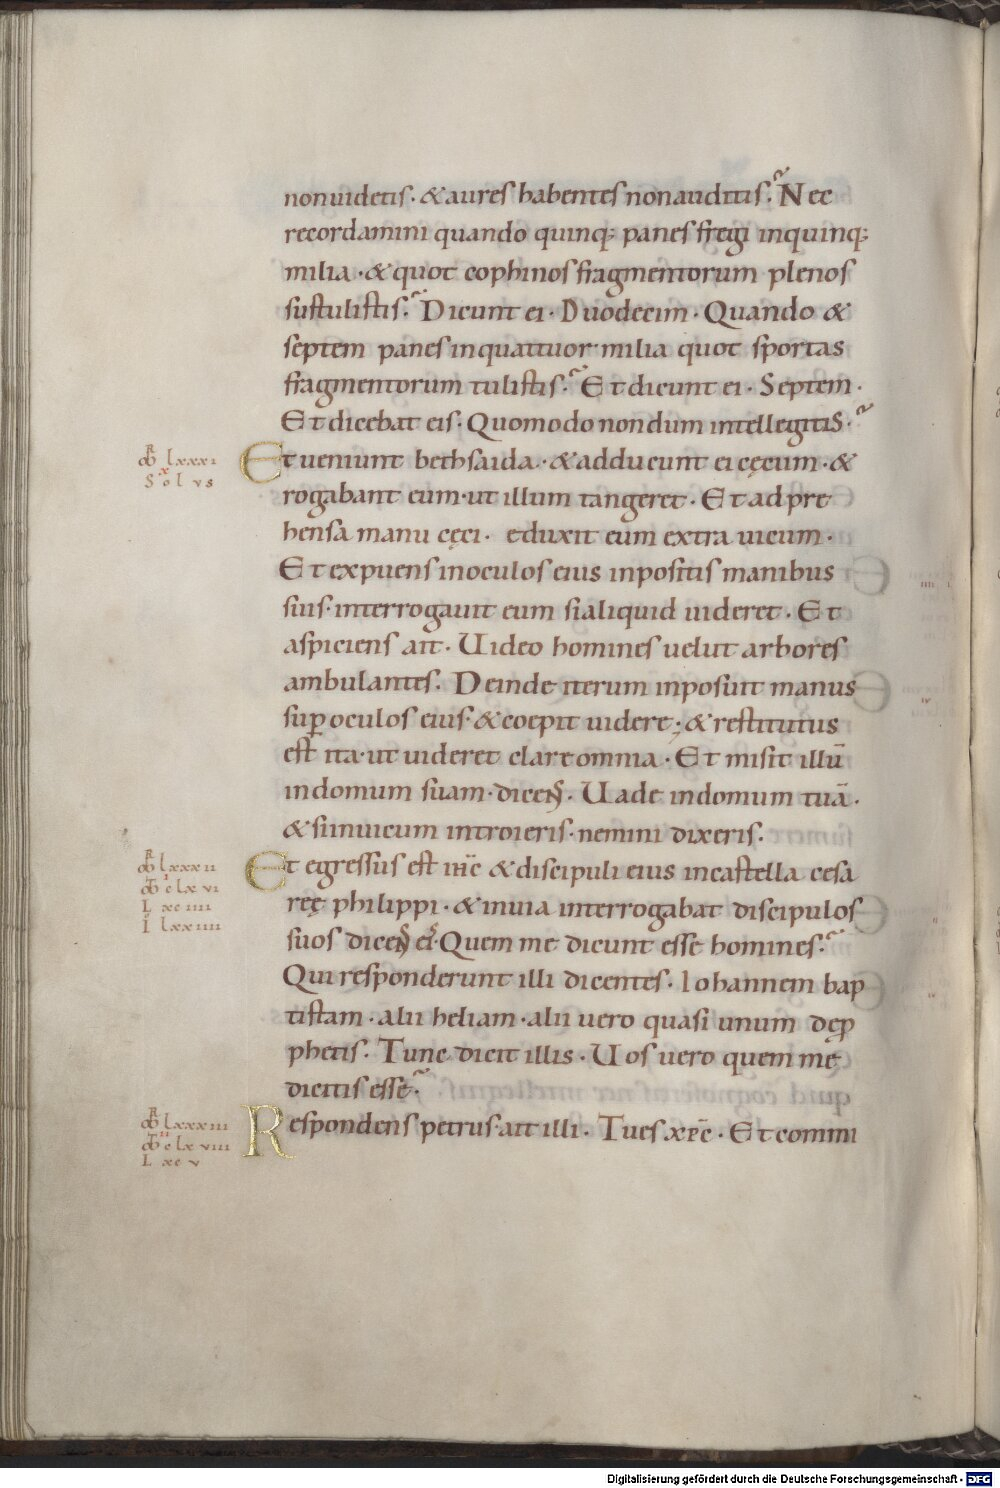 non uidetis · & aures habentes non auditis ·~ Nec
recordamini quando quinq; panes fregi in quinq;
milia · & quot cophinos fragmentorum plenos
sustulistis ·~ Dicunt ei · Duodecim · Quando &
septem panes in quattuor milia quot sportas
fragmentorum tulistis ·~ Et dicunt ei · Septem ·
Et dicebat eis · Quomodo nondum intellegitis ·~
lxxxi
Solus
Et ueniunt bethsaida · & adducunt ei cęcum · &
rogabant eum · ut illum tangeret · Et adpre
hensa manu cęci · eduxit eum extra uicum ·
Et expuens in oculos eius inpositis manibus
suis · interrogauit eum si aliquid uideret · Et
aspiciens ait · Uideo homines uelut arbores
ambulantes · Deinde iterum inposuit manus
sup̱ oculos eius · & coepit uidere ; & restitutus
est ita · ut uideret clare omnia · Et misit illū
in domum suam · dicens · Uade in domum tuā ·
& si in uicum introieris · nemini dixeris ·
lxxxii
clxvi
L xciiii
Et egressus est ihc̄ & discipuli eius in castella cesa
reę philippi · & in uia interrogabat discipulos
suos dicens eis · Quem me dicunt esse homines ·~
Qui responderunt illi dicentes · Iohannem bap
tistam · alii heliam · alii uero quasi unum de p̱
phetis · Tunc dicit illis · Uos uero quem me
dicitis esse ·~
lxxxiii
clxviii
L xcv
Respondens petrus · ait illi · Tu es xp̄c · Et commi
Digitalisierung gefördert durch die Deutsche Forschungsgemeinschaft - DFG